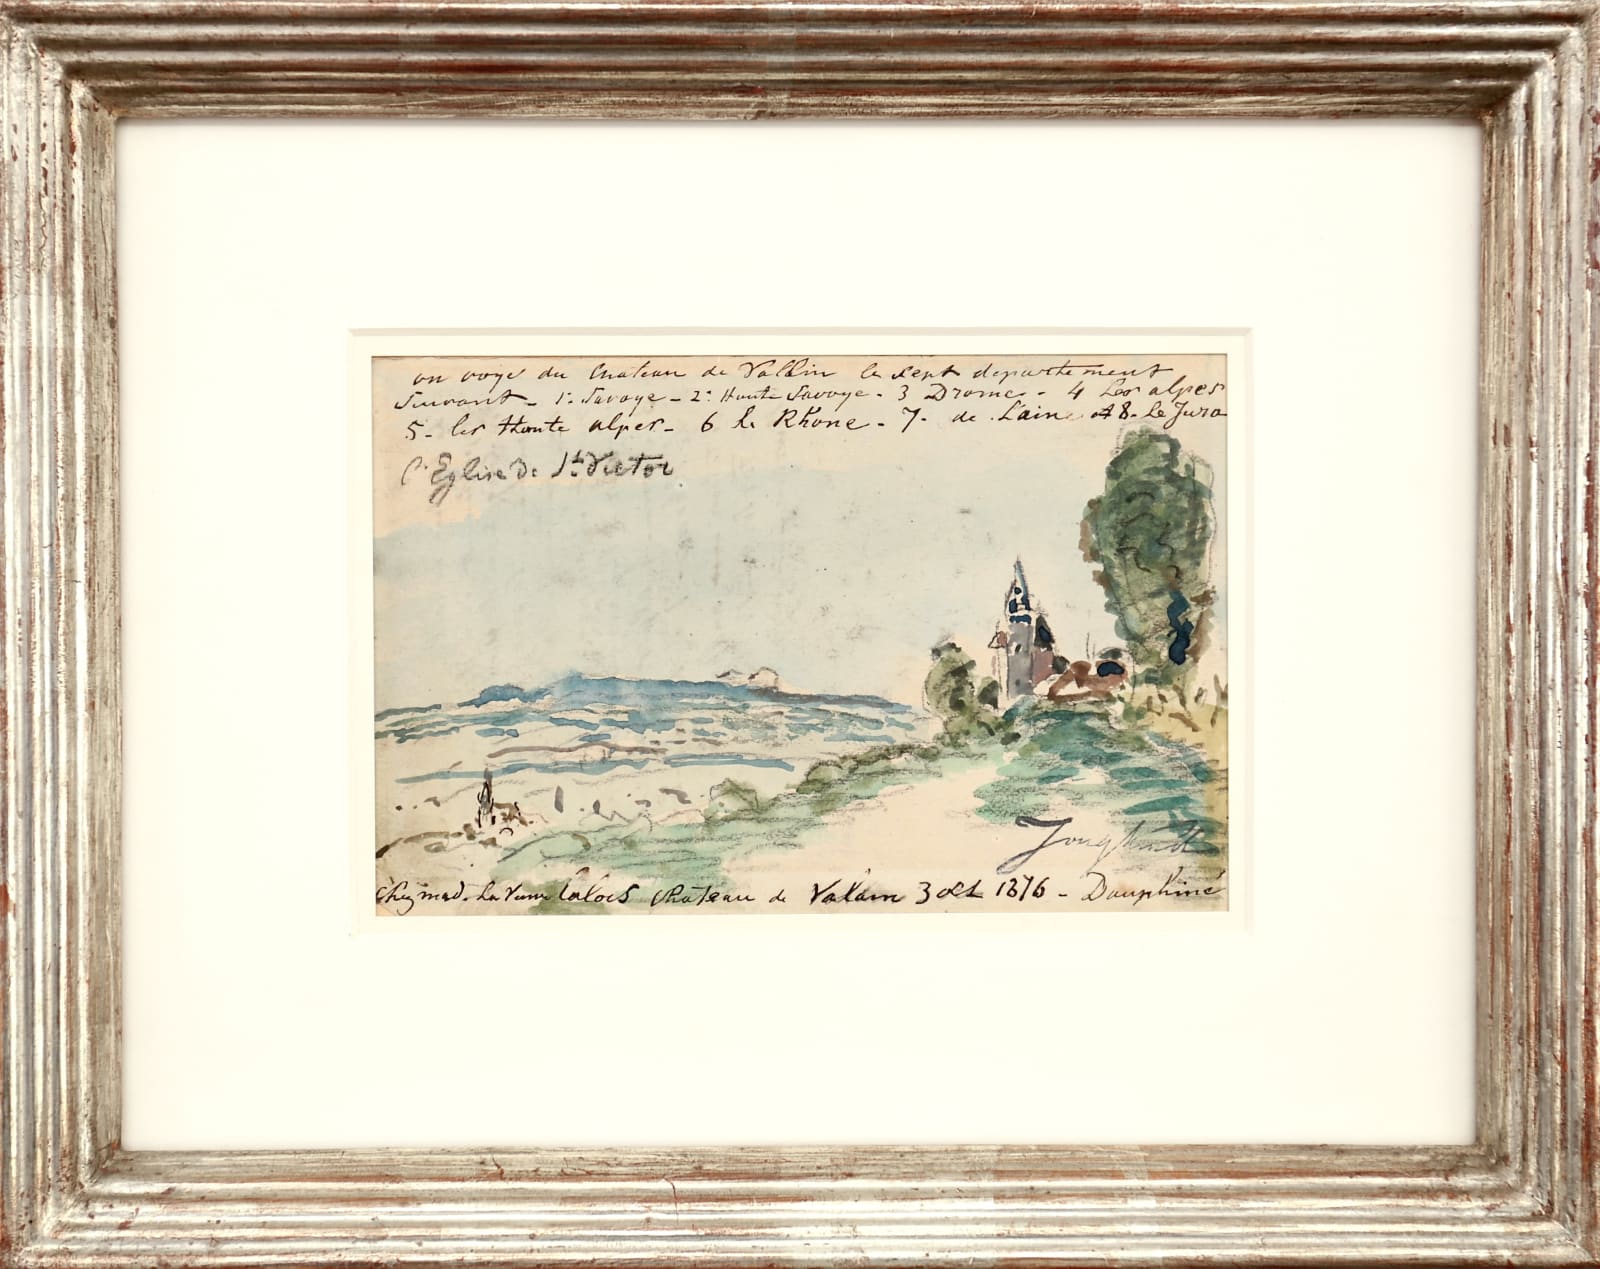 on voye du Chateau de Vallin le sept departement
Suivant - 1° Savoye - 2° Haute Savoye - 3 Drome - 4 Les alpes
5 - les Haute alpes - 6 le Rhone - 7 - de L'ain et 8 - le Jura
l'Eglise De St Victor
Jongkind
Chez mad. La Chateau de 3 oct 1876 - Dauphiné